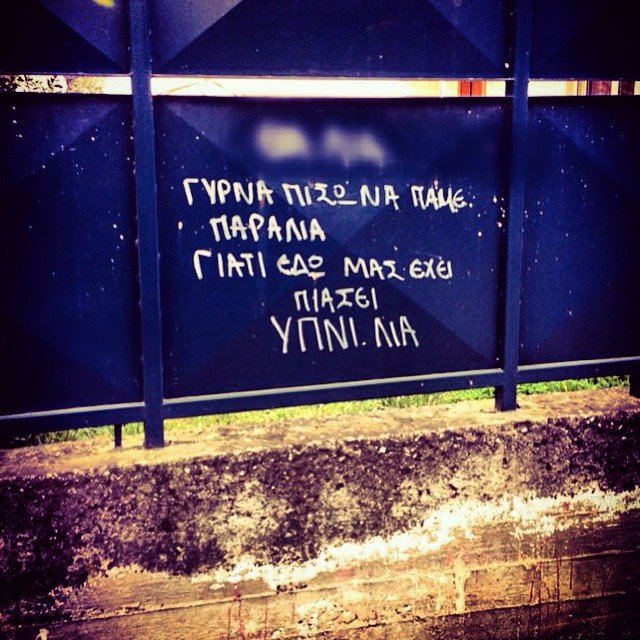 ΓΥΡΝΑ ΠΙΣΩ ΝΑ ΠΑΜΕ.
ΠΑΡΑΛΙΑ
ΓΙΑΤΙ ΕΔΩ ΜΑΣ ΕΧΕΙ
ΠΙΑΣΕΙ
ΥΠΝΙ.ΛΙΑ